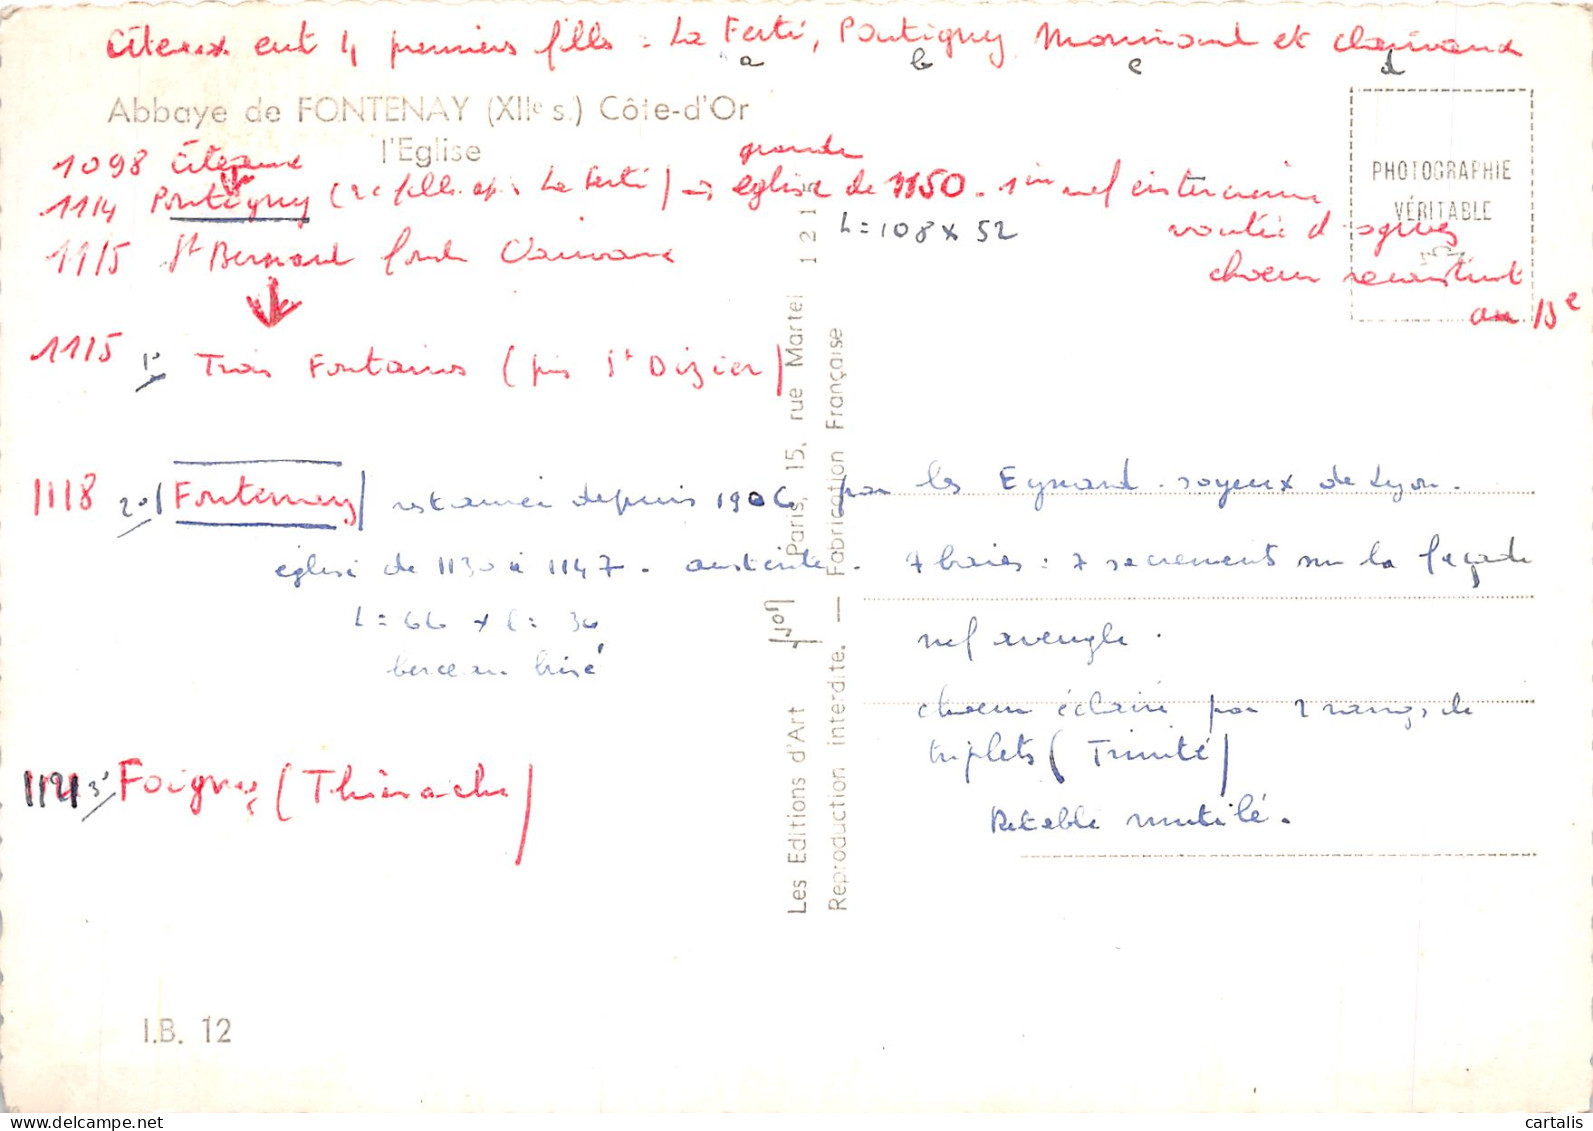 Citeaux eut 4 premiers filles : La Ferté, Pontigny Morimond et Clairvaux
a b c d
Abbaye de FONTENAY (XIIe s.) Côte-d'Or
l'Eglise
PHOTOGRAPHIE
VÉRITABLE
1098 Citeaux
1114 Pontigny (2e fille ap. La Ferté) → grande église de 1150 - 1ère nef cistercienne
voutée d'ogives
L = 108 x 52
choeur reconstruit
au 13e
1115 St Bernard fonde Clairvaux
1115 1° Trois Fontaines (près St Dizier)
1118 2°/ Fontenay / restaurée depuis 1906 par les Eynard - soyeux de Lyon.
église de 1130 à 1147 - austérité. 7 baies : 7 sacrements sur la façade
L = 66 x l = 30
berceau brisé
nef aveugle.
choeur éclairé par 2 rangs de
triplets (Trinité)
Retable mutilé.
1121 3° Foigny (Thiérache)
Les Editions d'Art Yvon Paris, 15, rue Martel
Reproduction interdite. — Fabrication Française
I.B. 12
cartalis